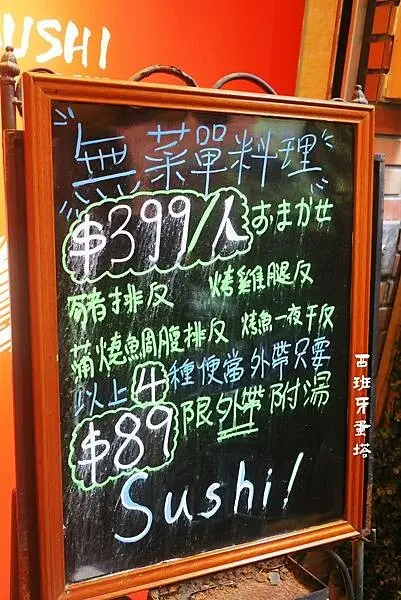 USHI
無菜單料理
$399/人 おまかせ
豬排反 烤雞腿反
蒲燒魚鯛腹排反 烤魚一夜干反
以上4種便當外帶只要
$89 限外帶附湯
Sushi!
西班牙蛋塔